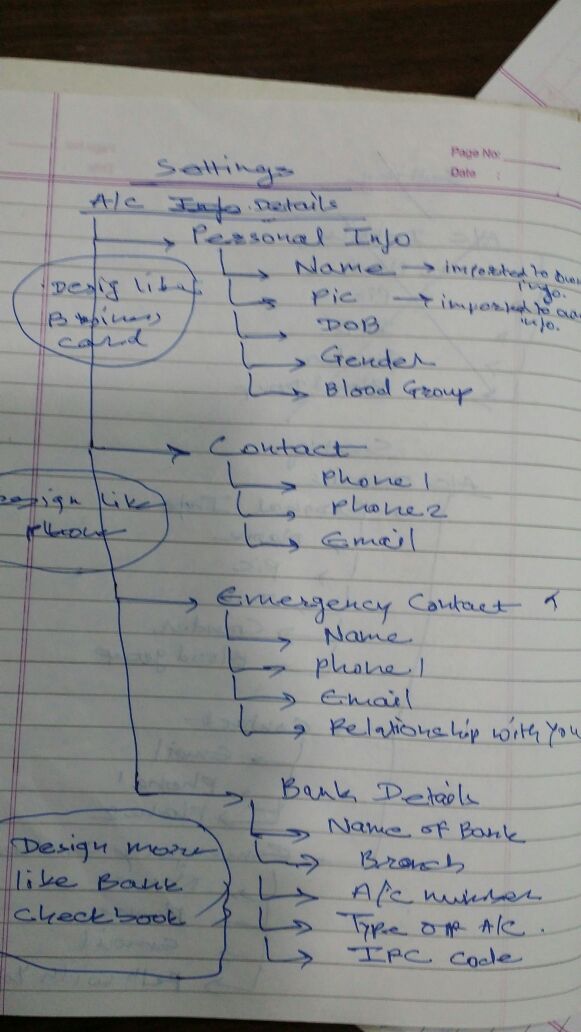 Page No:
Date :
Settings
A/C Info Details
Personal Info
Name → imported to
info.
Pic → imported to
info.
DOB
Gender
Blood Group
Desig like
Business
card
Contact
Phone 1
Phone 2
Email
Design like
phone
Emergency Contact
Name
Phone 1
Email
Relationship with You
Bank Details
Name of Bank
Branch
A/c number
Type of A/c.
IFC Code
Design more
like Bank
checkbook